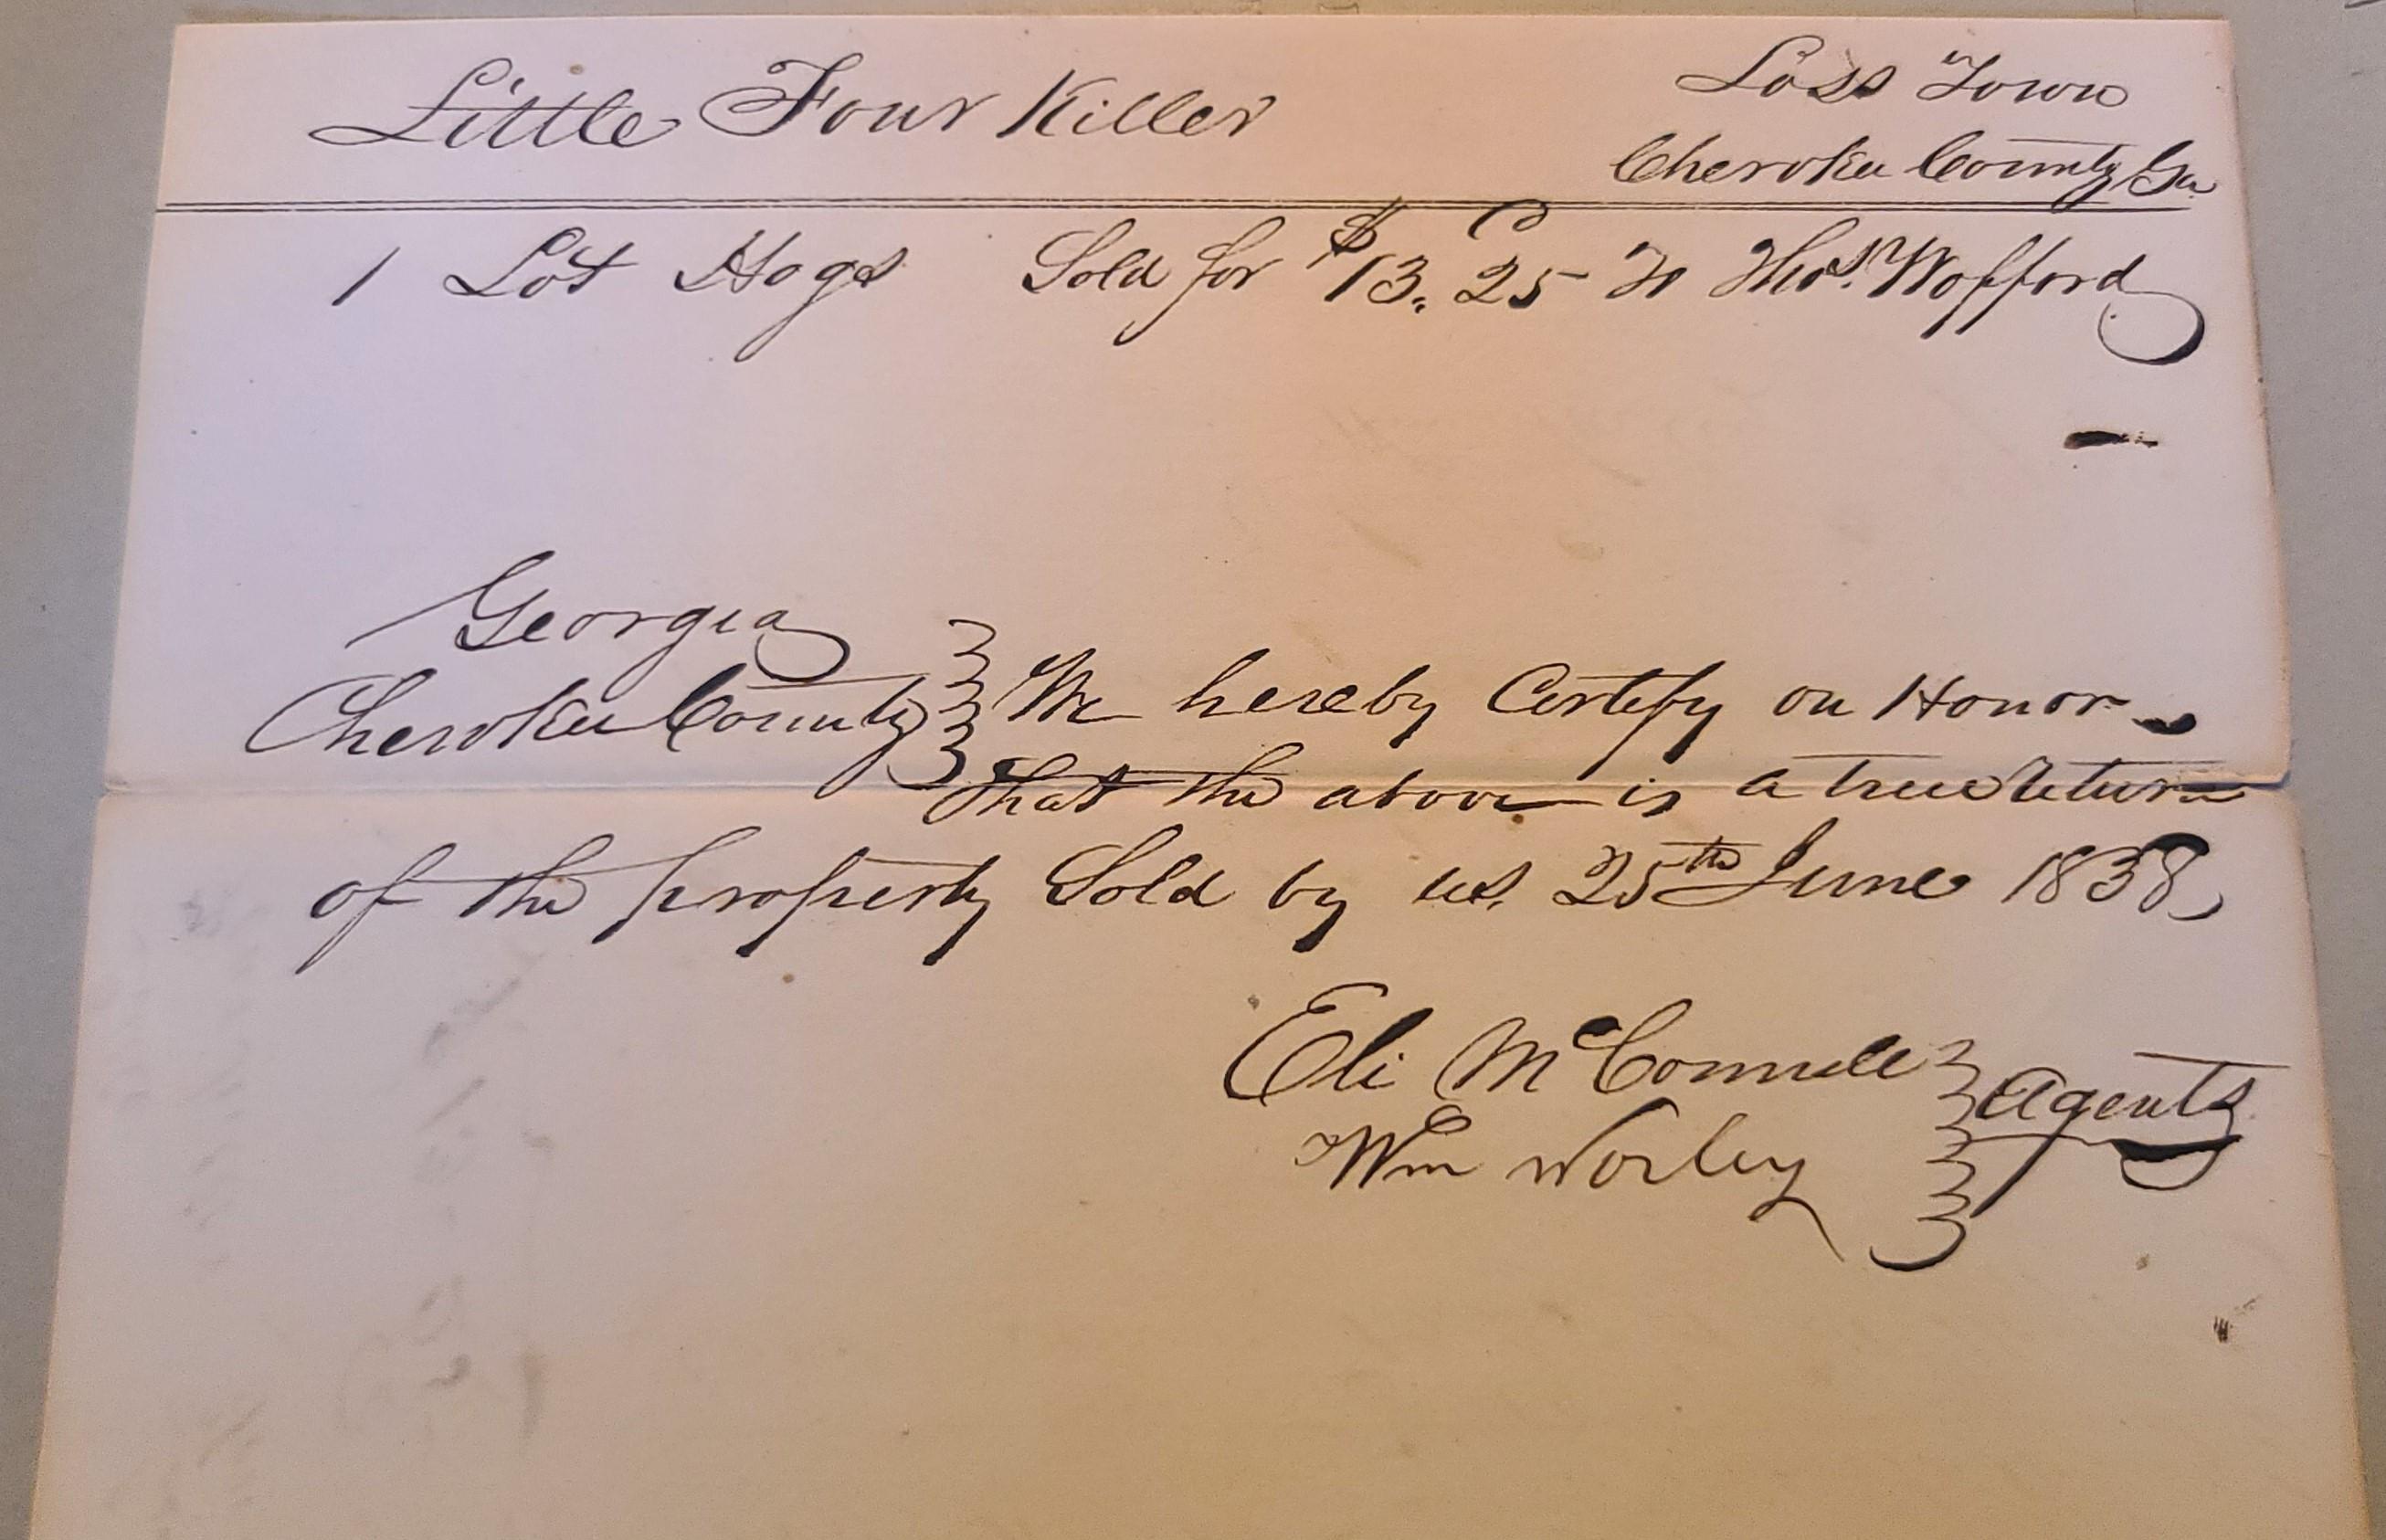 Little Four Killer
Loss Town
Cherokee County Ga.
1 Lot Hogs Sold for $13.25 to Thos. Wofford
Georgia
Cherokee County } We hereby Certify on Honor
that the above is a true return
of the property Sold by us. 25th June 1838,
Eli McConnell
Wm Worley } Agents